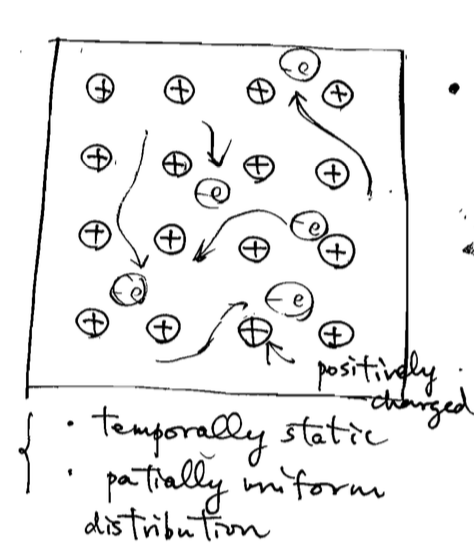 -e
⊕ ⊕ ⊕ ⊕
⊕ ⊕ ⊕ ⊕
-e
-e
⊕ ⊕ ⊕ ⊕
-e -e
⊕ ⊕ ⊕ ⊕
positively
charged
{ · temporally static
· patially uniform
distribution